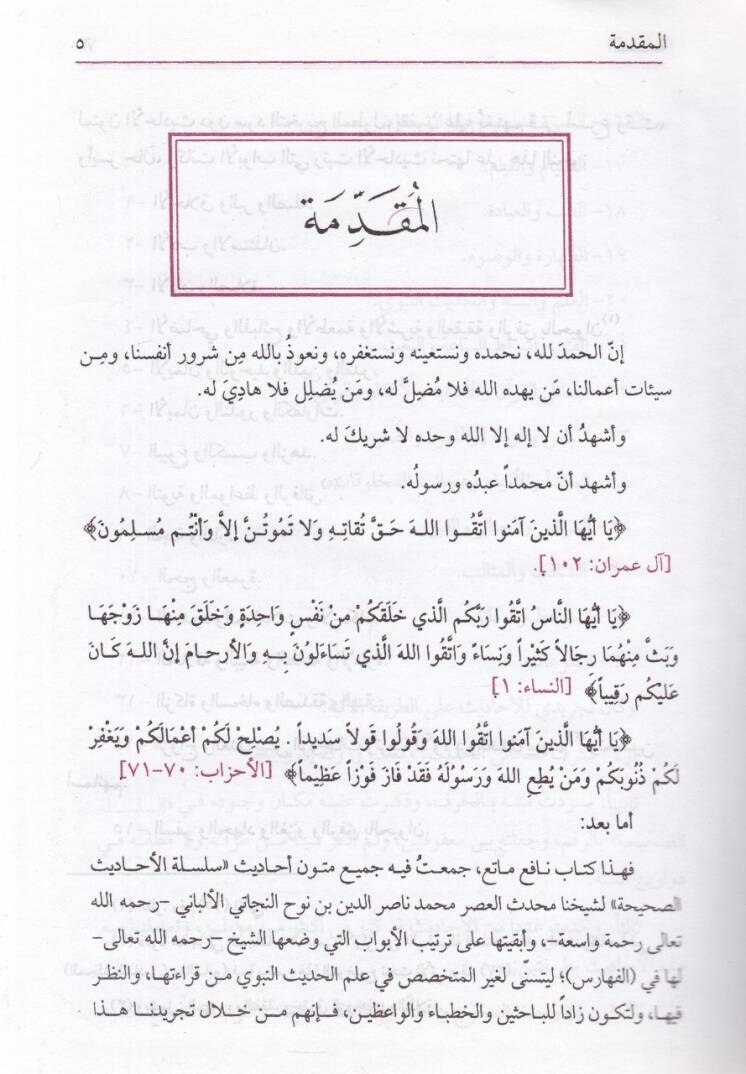 المقدمة ٥
المُقَدِّمَة
إنّ الحمدَ لله، نحمده ونستعينه ونستغفره، ونعوذُ بالله مِن شرور أنفسنا، ومِـن
سيئات أعمالنا، مَن يهده الله فلا مُضِلَّ له، ومَن يُضلِل فلا هادِيَ له.
وأشهدُ أن لا إله إلا الله وحده لا شريكَ له.
وأشهد أنّ محمداً عبدُه ورسولُه.
﴿يَا أيُّهَا الَّذينَ آمَنوا اتَّقُـوا اللـهَ حَـقَّ تُقاتِـهِ وَلا تَمُوتُـنَّ إلاَّ وَأَنْتُـم مُسـلِمُونَ﴾
[آل عمران: ١٠٢].
﴿يَا أيُّهَا النَّاسُ اتَّقُوا رَبَّكُم الَّذي خَلَقَكُمْ مِنْ نَفْسٍ وَاحِدَةٍ وَخَلَقَ مِنْهَـا زَوْجَهَـا
وَبَثَّ مِنْهُمَا رِجَالاً كَثَيْراً وَنِسَاءً وَاتَّقُوا اللهَ الذي تَسَاءَلونَ بِـهِ وَالأرحامَ إنَّ اللـهَ كَـانَ
عَلَيْكُم رَقِيباً﴾ [النساء: ١]
﴿يَا أيُّهَا الَّذينَ آمَنوا اتَّقُوا اللهَ وَقُولُوا قَولاً سَدِيداً . يُصْلِحْ لَكُمْ أعْمَالَكُمْ وَيَغْفِرْ
لَكُمْ ذُنُوبَكُمْ وَمَنْ يُطِعِ اللهَ وَرَسُولَهُ فَقَدْ فَازَ فَوْزَاً عَظِيْماً﴾ [الأحزاب: ٧٠-٧١]
أما بعد:
فهـذا كتـاب نافع ماتع، جمعـتُ فيه جميـع متون أحاديث «سلسلة الأحاديث
الصحيحة» لشيخنا محدث العصر محمد ناصر الدين بن نوح النجاتي الألباني -رحمه الله
تعالى رحمة واسعة-، وأبقيتها على ترتيب الأبواب التي وضعها الشيخ -رحمه الله تعالى-
لها في (الفهارس)؛ ليتسنّى لغير المتخصص في علم الحديث النبوي من قراءتهـا، والنظر
فيهـا، ولتكـون زاداً للباحثين والخطباء والواعظين، فـإنهم مـن خـلال تجريدنـا هـذا